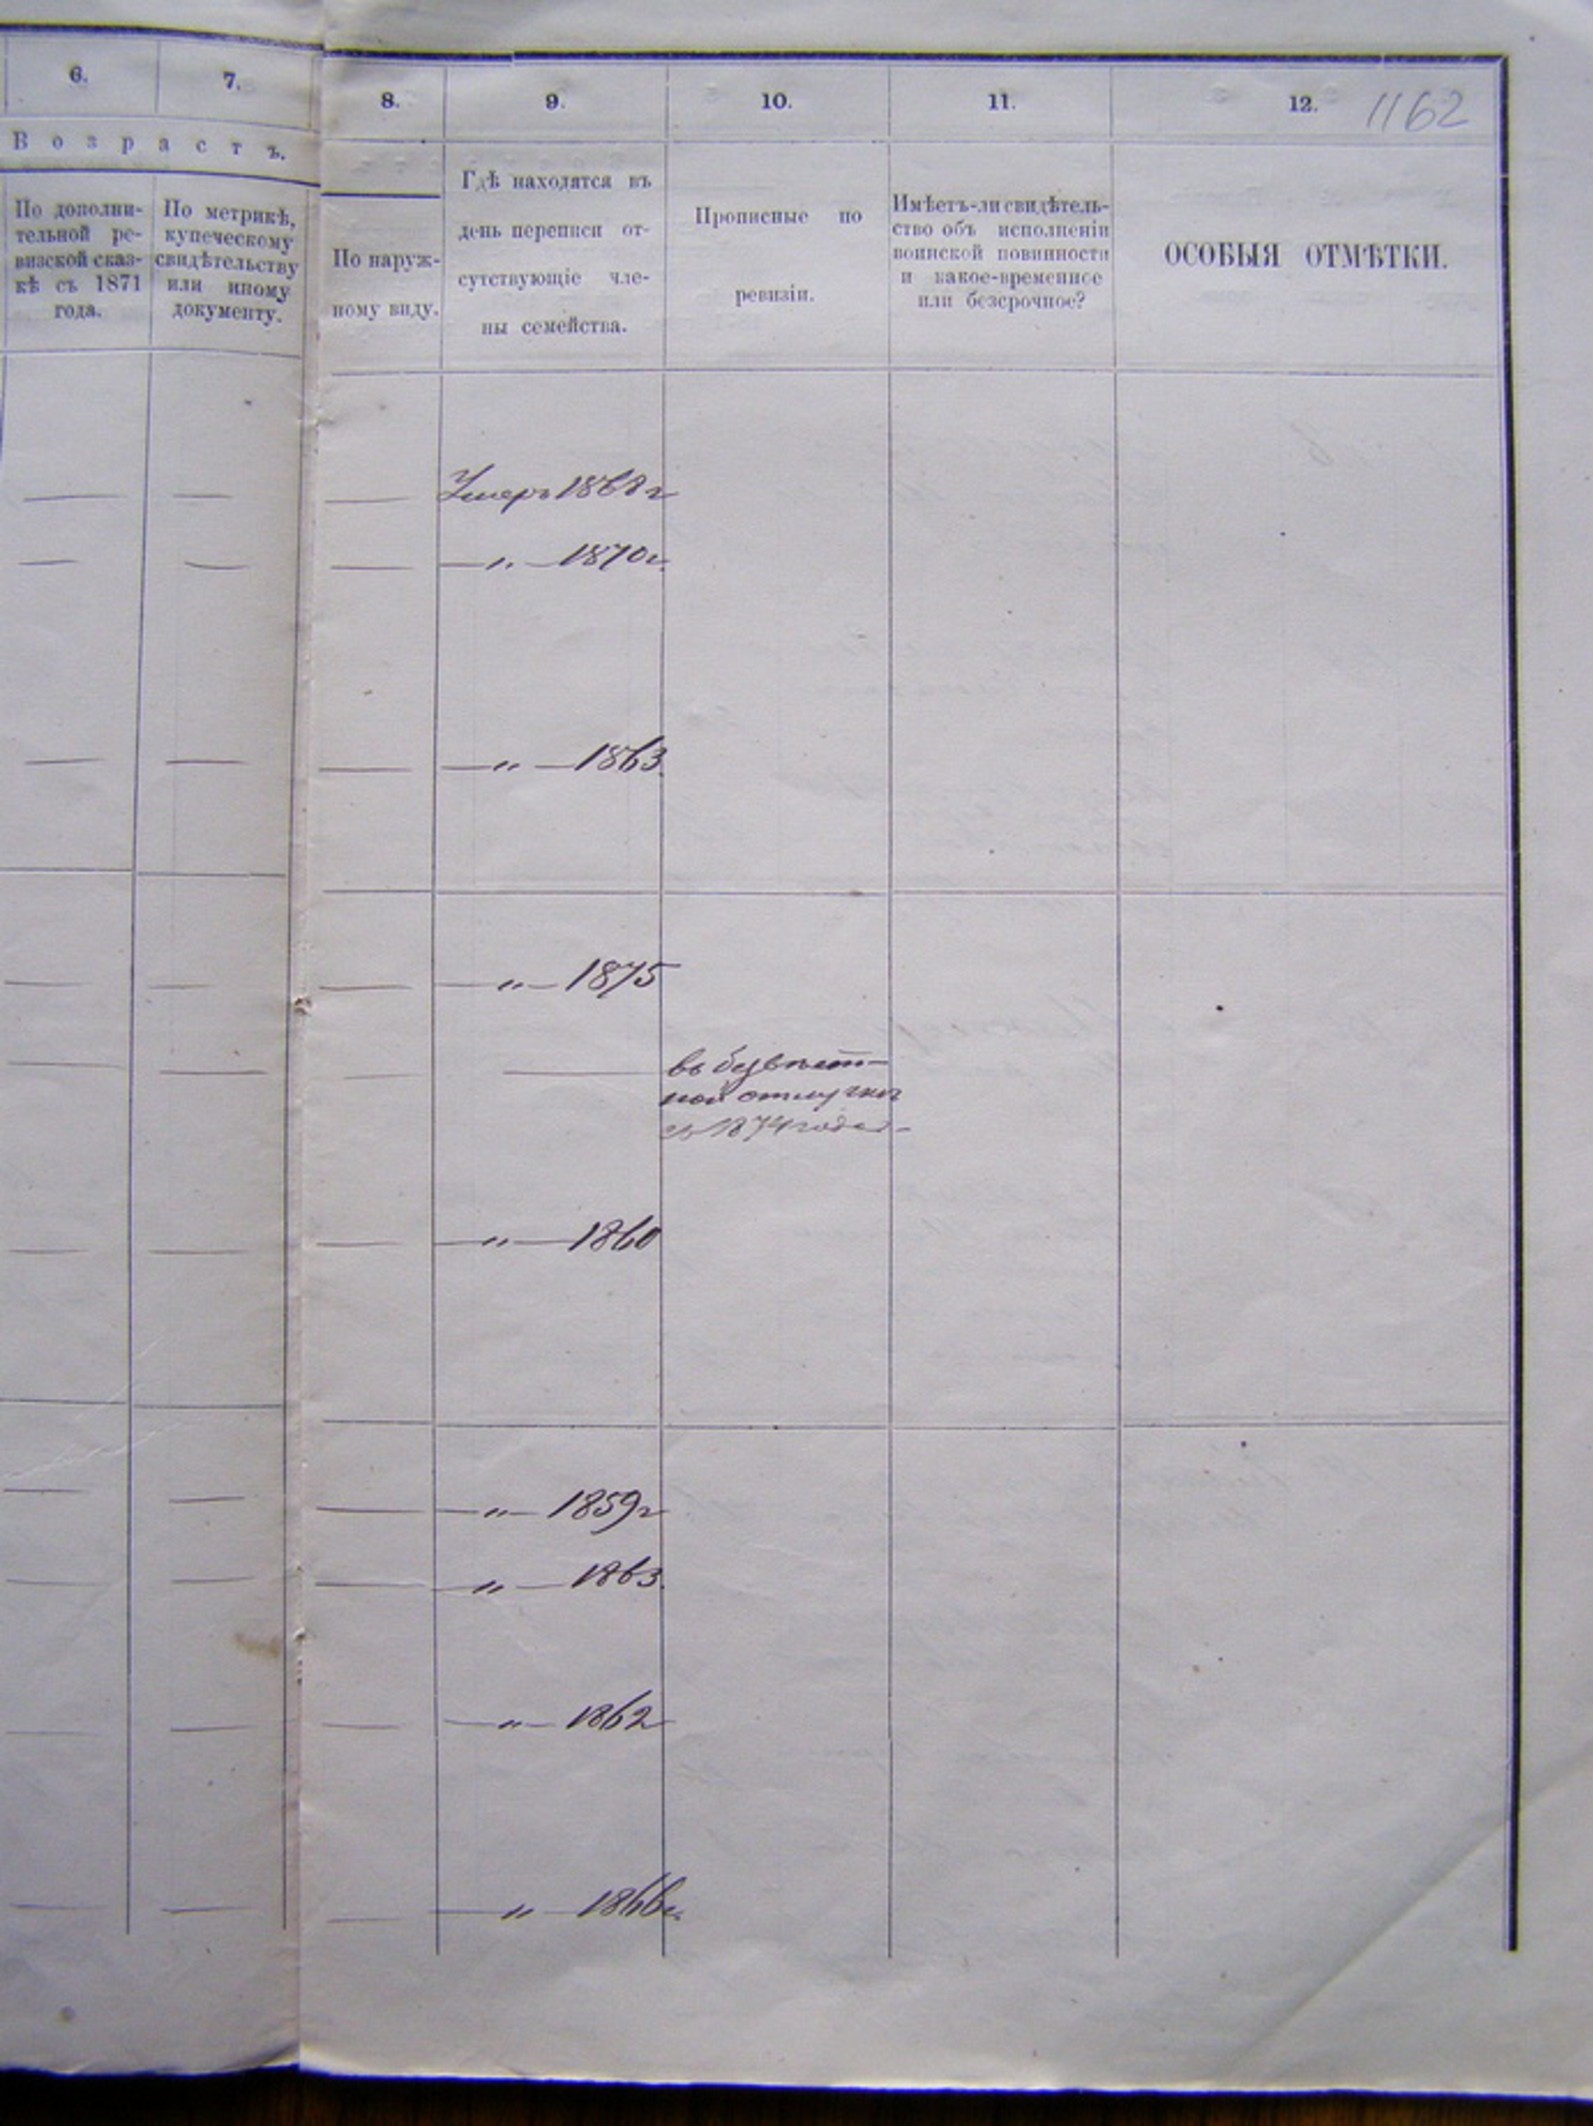 6. 7. 8. 9. 10. 11. 12. 1162
Возрастъ.
По дополни-
тельной ре-
визской сказ-
кѣ съ 1871
года.
По метрикѣ,
купеческому
свидѣтельству
или иному
документу.
По наруж-
ному виду.
Гдѣ находятся въ
день переписи от-
сутствующіе чле-
ны семейства.
Прописные по
ревизіи.
Имѣетъ-ли свидѣтель-
ство объ исполненіи
воинской повинности
и какое-временное
или безсрочное?
ОСОБЫЯ ОТМѢТКИ.
— — — Умеръ 1868 г
— — — —〃— 1870 г.
— — — —〃— 1863.
— — — —〃— 1875
— — — — въ безвѣст-
ной отлучкѣ
съ 1874 года
— — — —〃— 1860
— — — —〃— 1859 г
— — — —〃— 1863.
— — — —〃— 1862
— — — —〃— 1866 г.